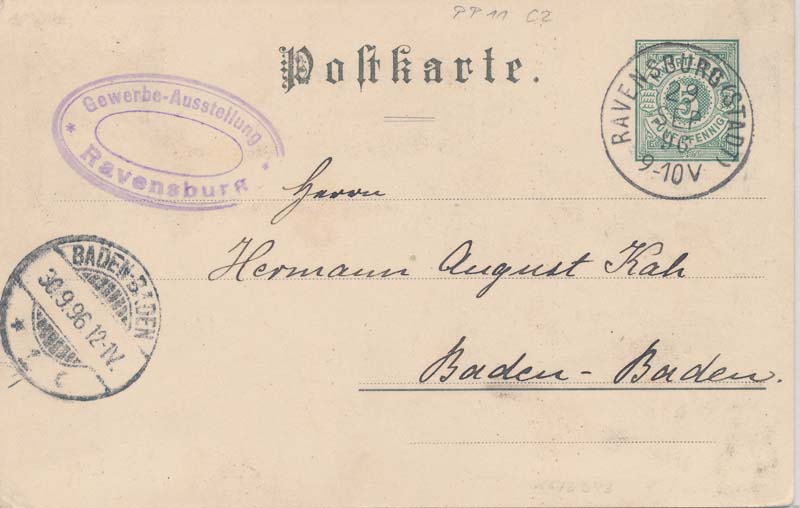 PP 11 C2
Postkarte.
Gewerbe-Ausstellung
* Ravensburg *
RAVENSBURG (STADT)
29
9
96
9-10V
FÜNF PFENNIG
Herrn
Hermann August Kah
BADEN-BADEN
30.9.96.12-1V.
* 1 c
Baden-Baden.